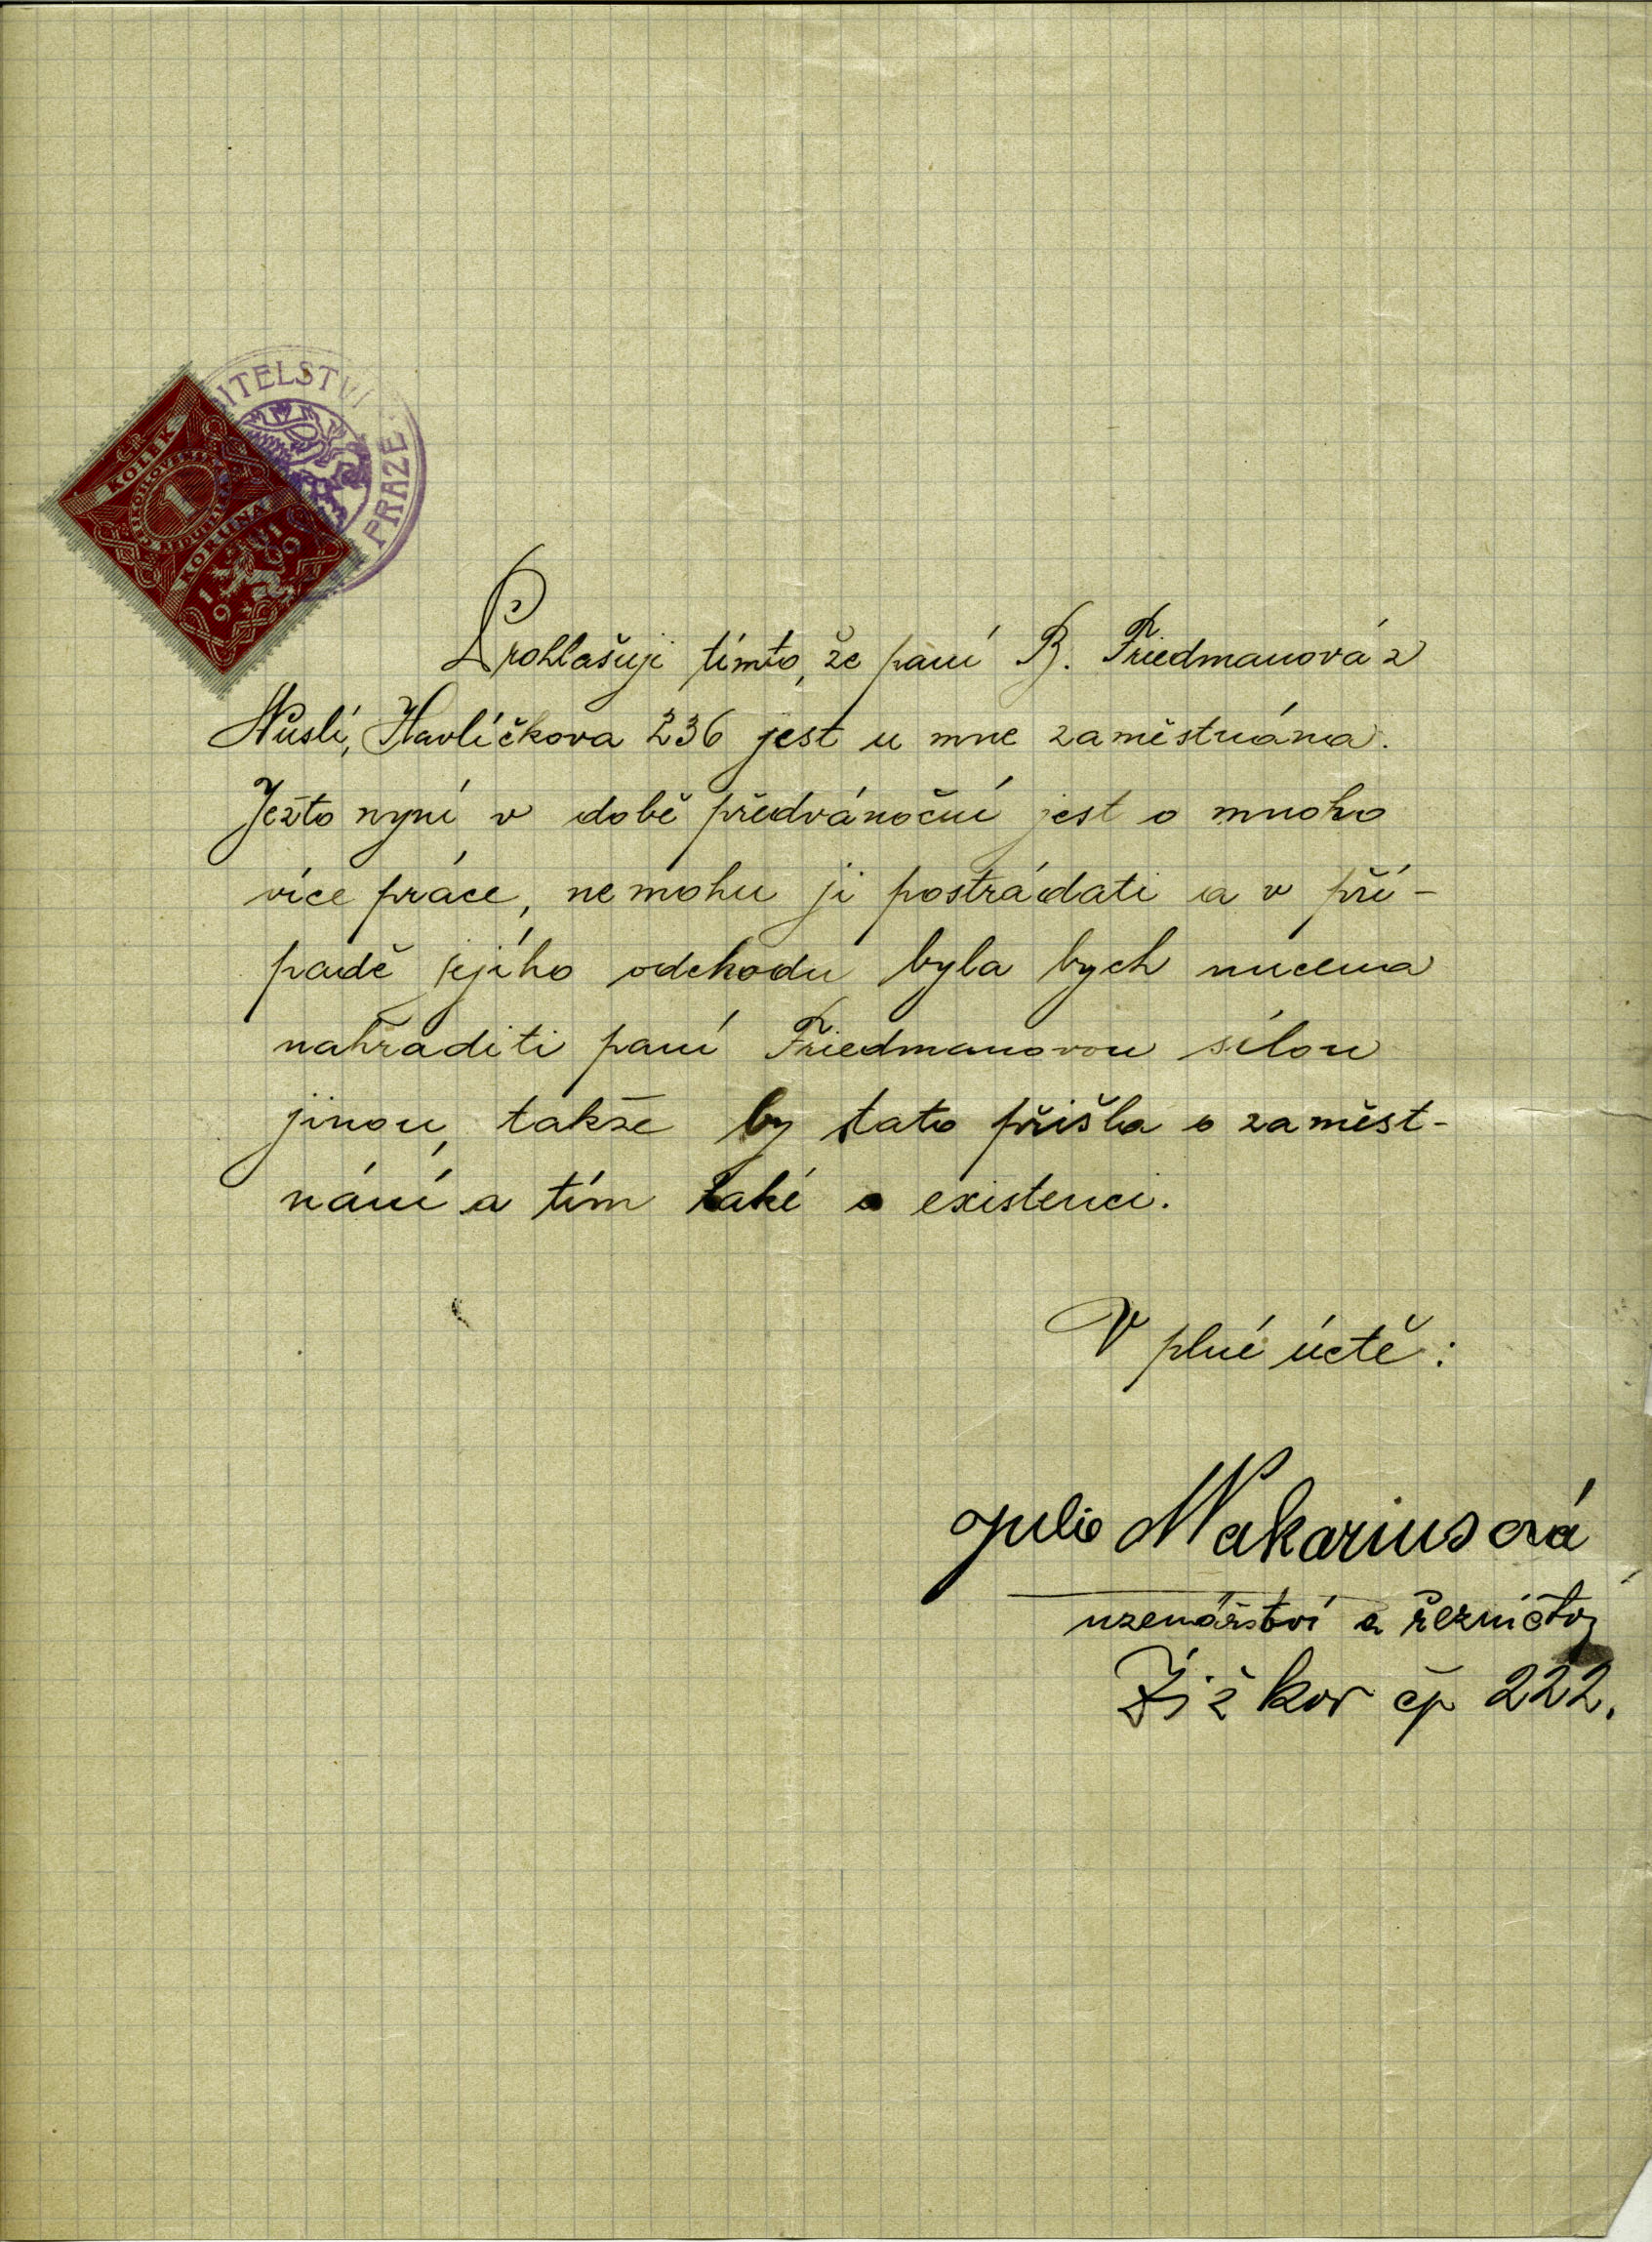 ITELSTVÍ
PRAZE
ČR
KOLEK
ČESKOSLOVENSKÁ
1
KORUNA
1919
Prohlašuji tímto, že paní B. Friedmanová z
Nuslí, Havlíčkova 236 jest u mne zaměstnána.
Ježto nyní v době předvánoční jest o mnoho
více práce, nemohu ji postrádati a v pří-
padě jejího odchodu byla bych nucena
nahraditi paní Friedmanovou silou
jinou, takže by tato přišla o zaměst-
nání a tím také o existenci.
V plné úctě:
Julie Makariusová
uzenářství a řeznictví
Žižkov čp 222.